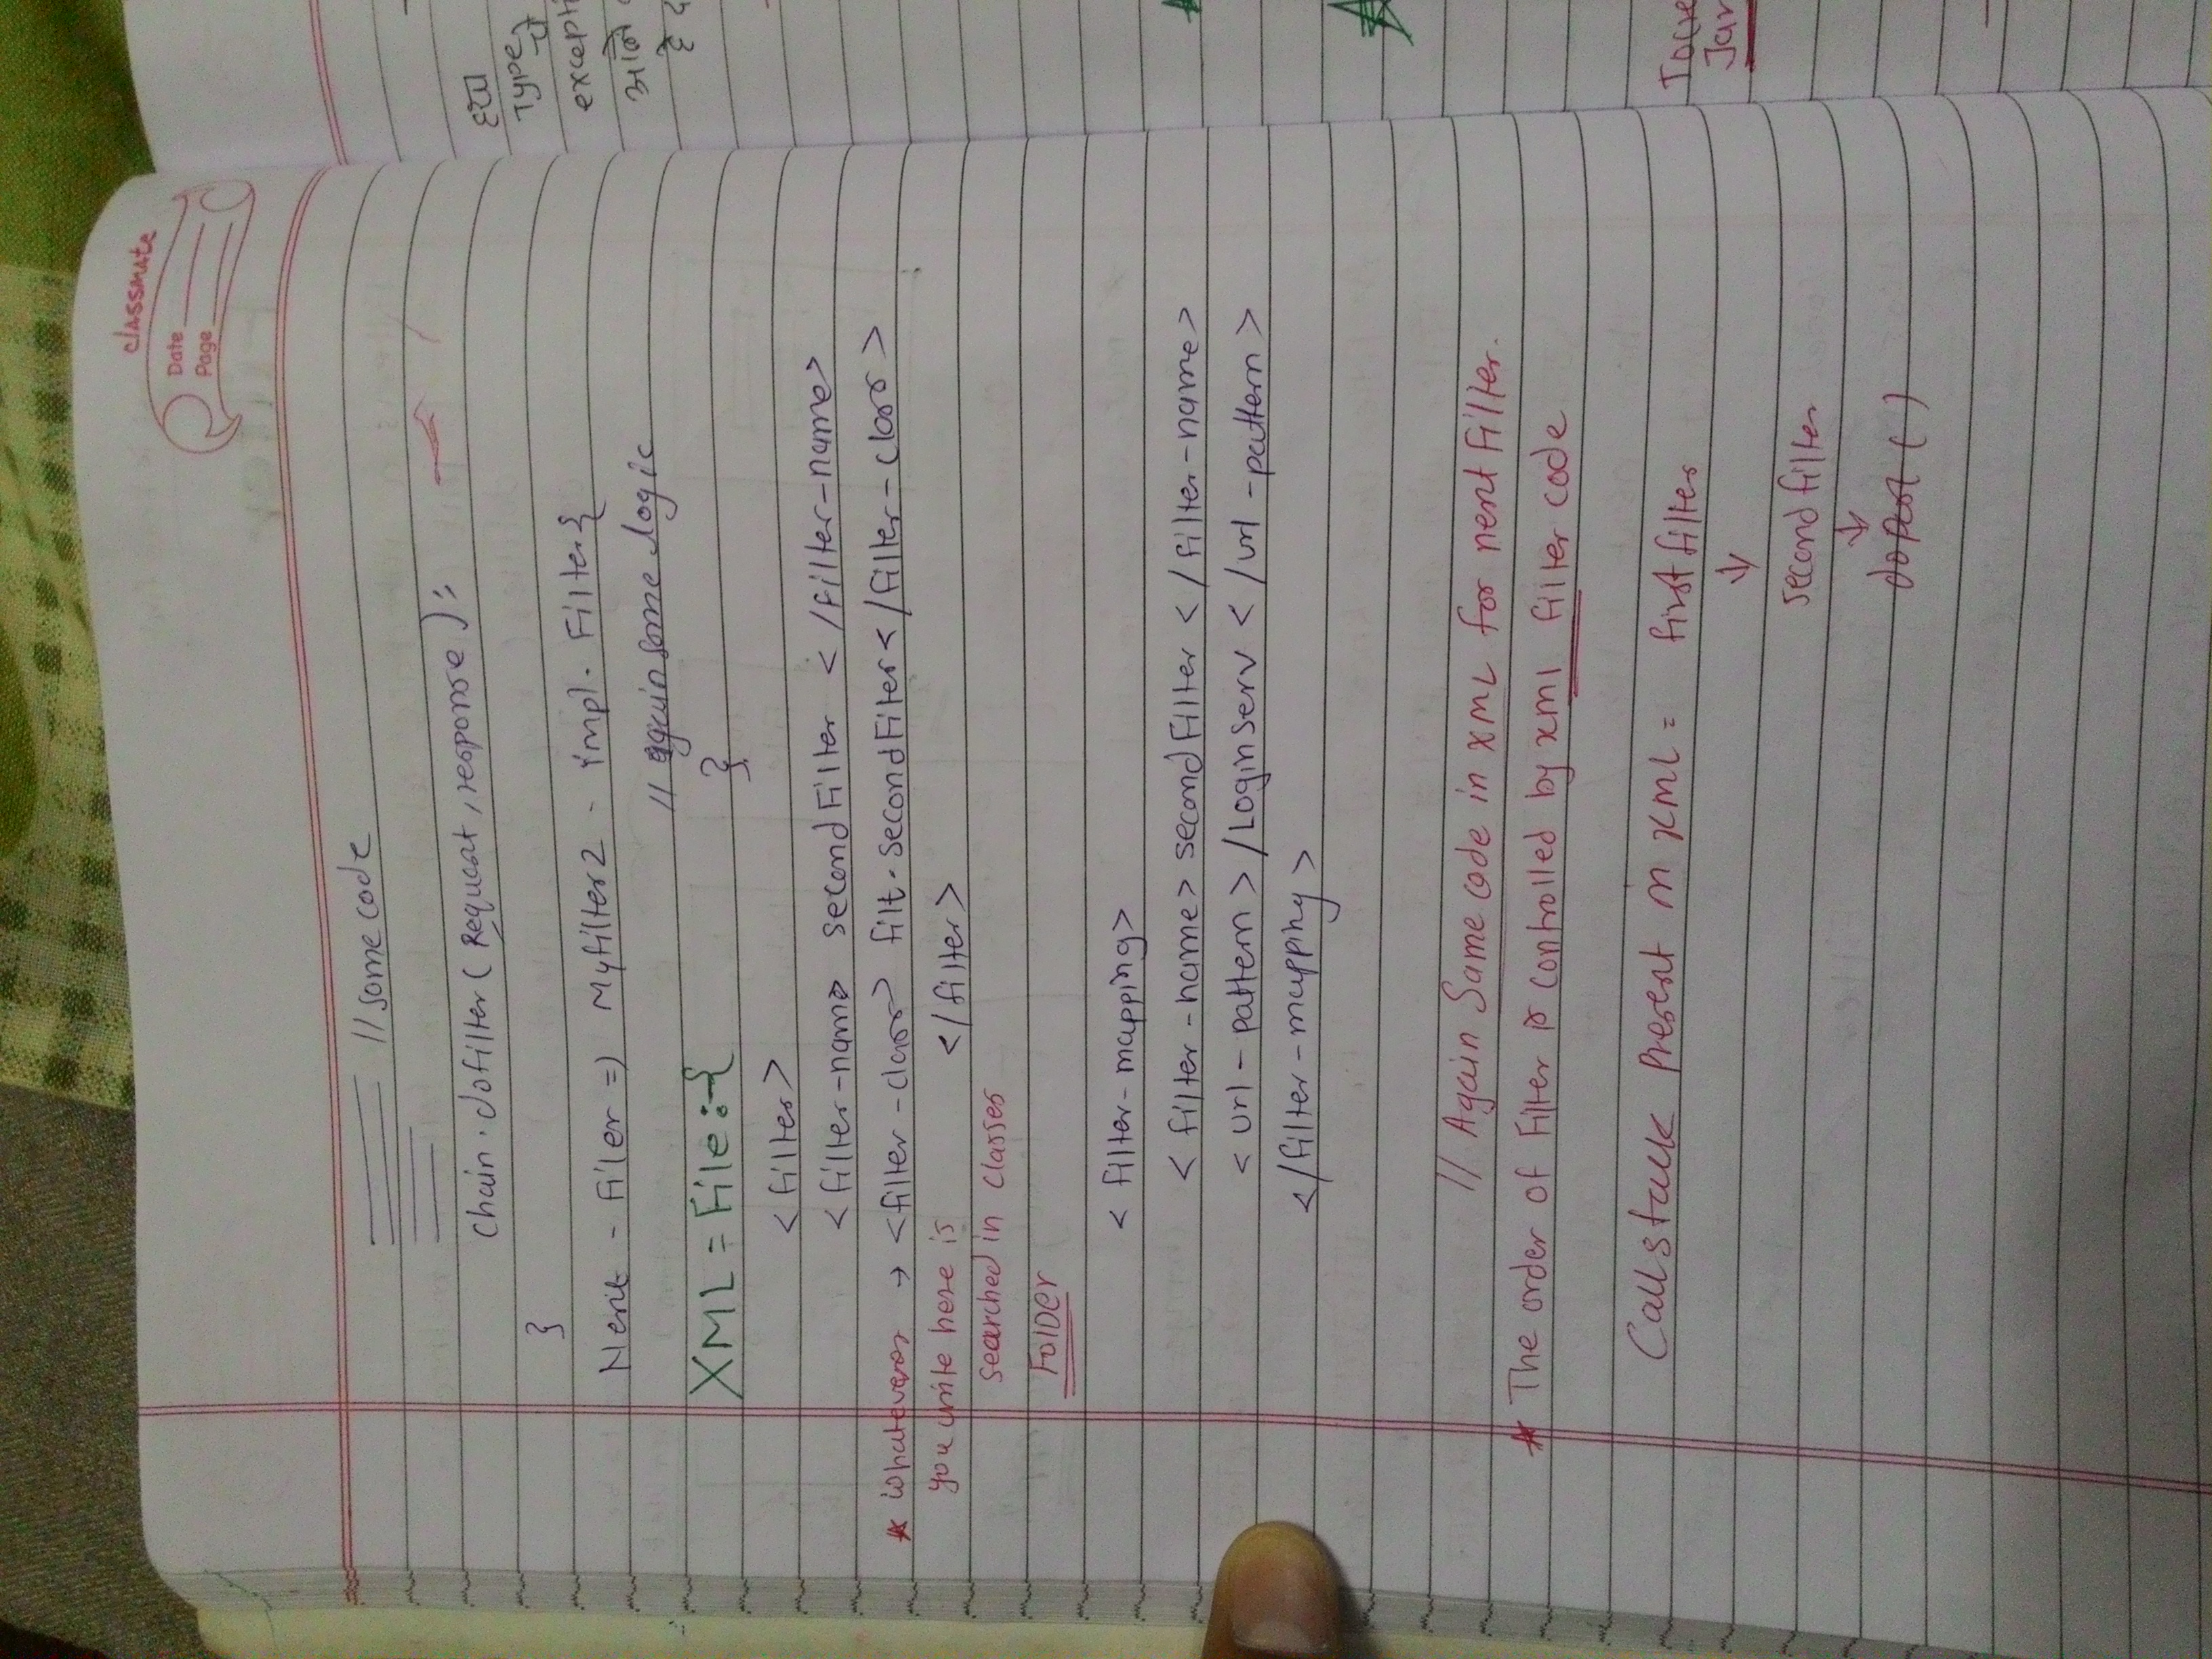 classmate
Date
Page
// some code
chain.dofilter( Request, response );
}
Next - Filer => Myfilter2 - impl. Filter{
// again some logic
}
XML = File :-{
<filter>
<filter-name> secondFilter </filter-name>
* whatevever → <filter-class> filt.secondFilter</filter-class>
you write here is </filter>
searched in classes
Folder
<filter-mapping>
<filter-name> secondFilter </filter-name>
<url-pattern> /LoginServ </url-pattern>
</filter-mapping>
// Again Same code in XML for next filter.
* The order of Filter is controlled by xml filter code
Callstack Present in XML = first filter
↓
second filter
↓
doPost ( )
ह्या
Type चे
excepti
आले
हे
Jar